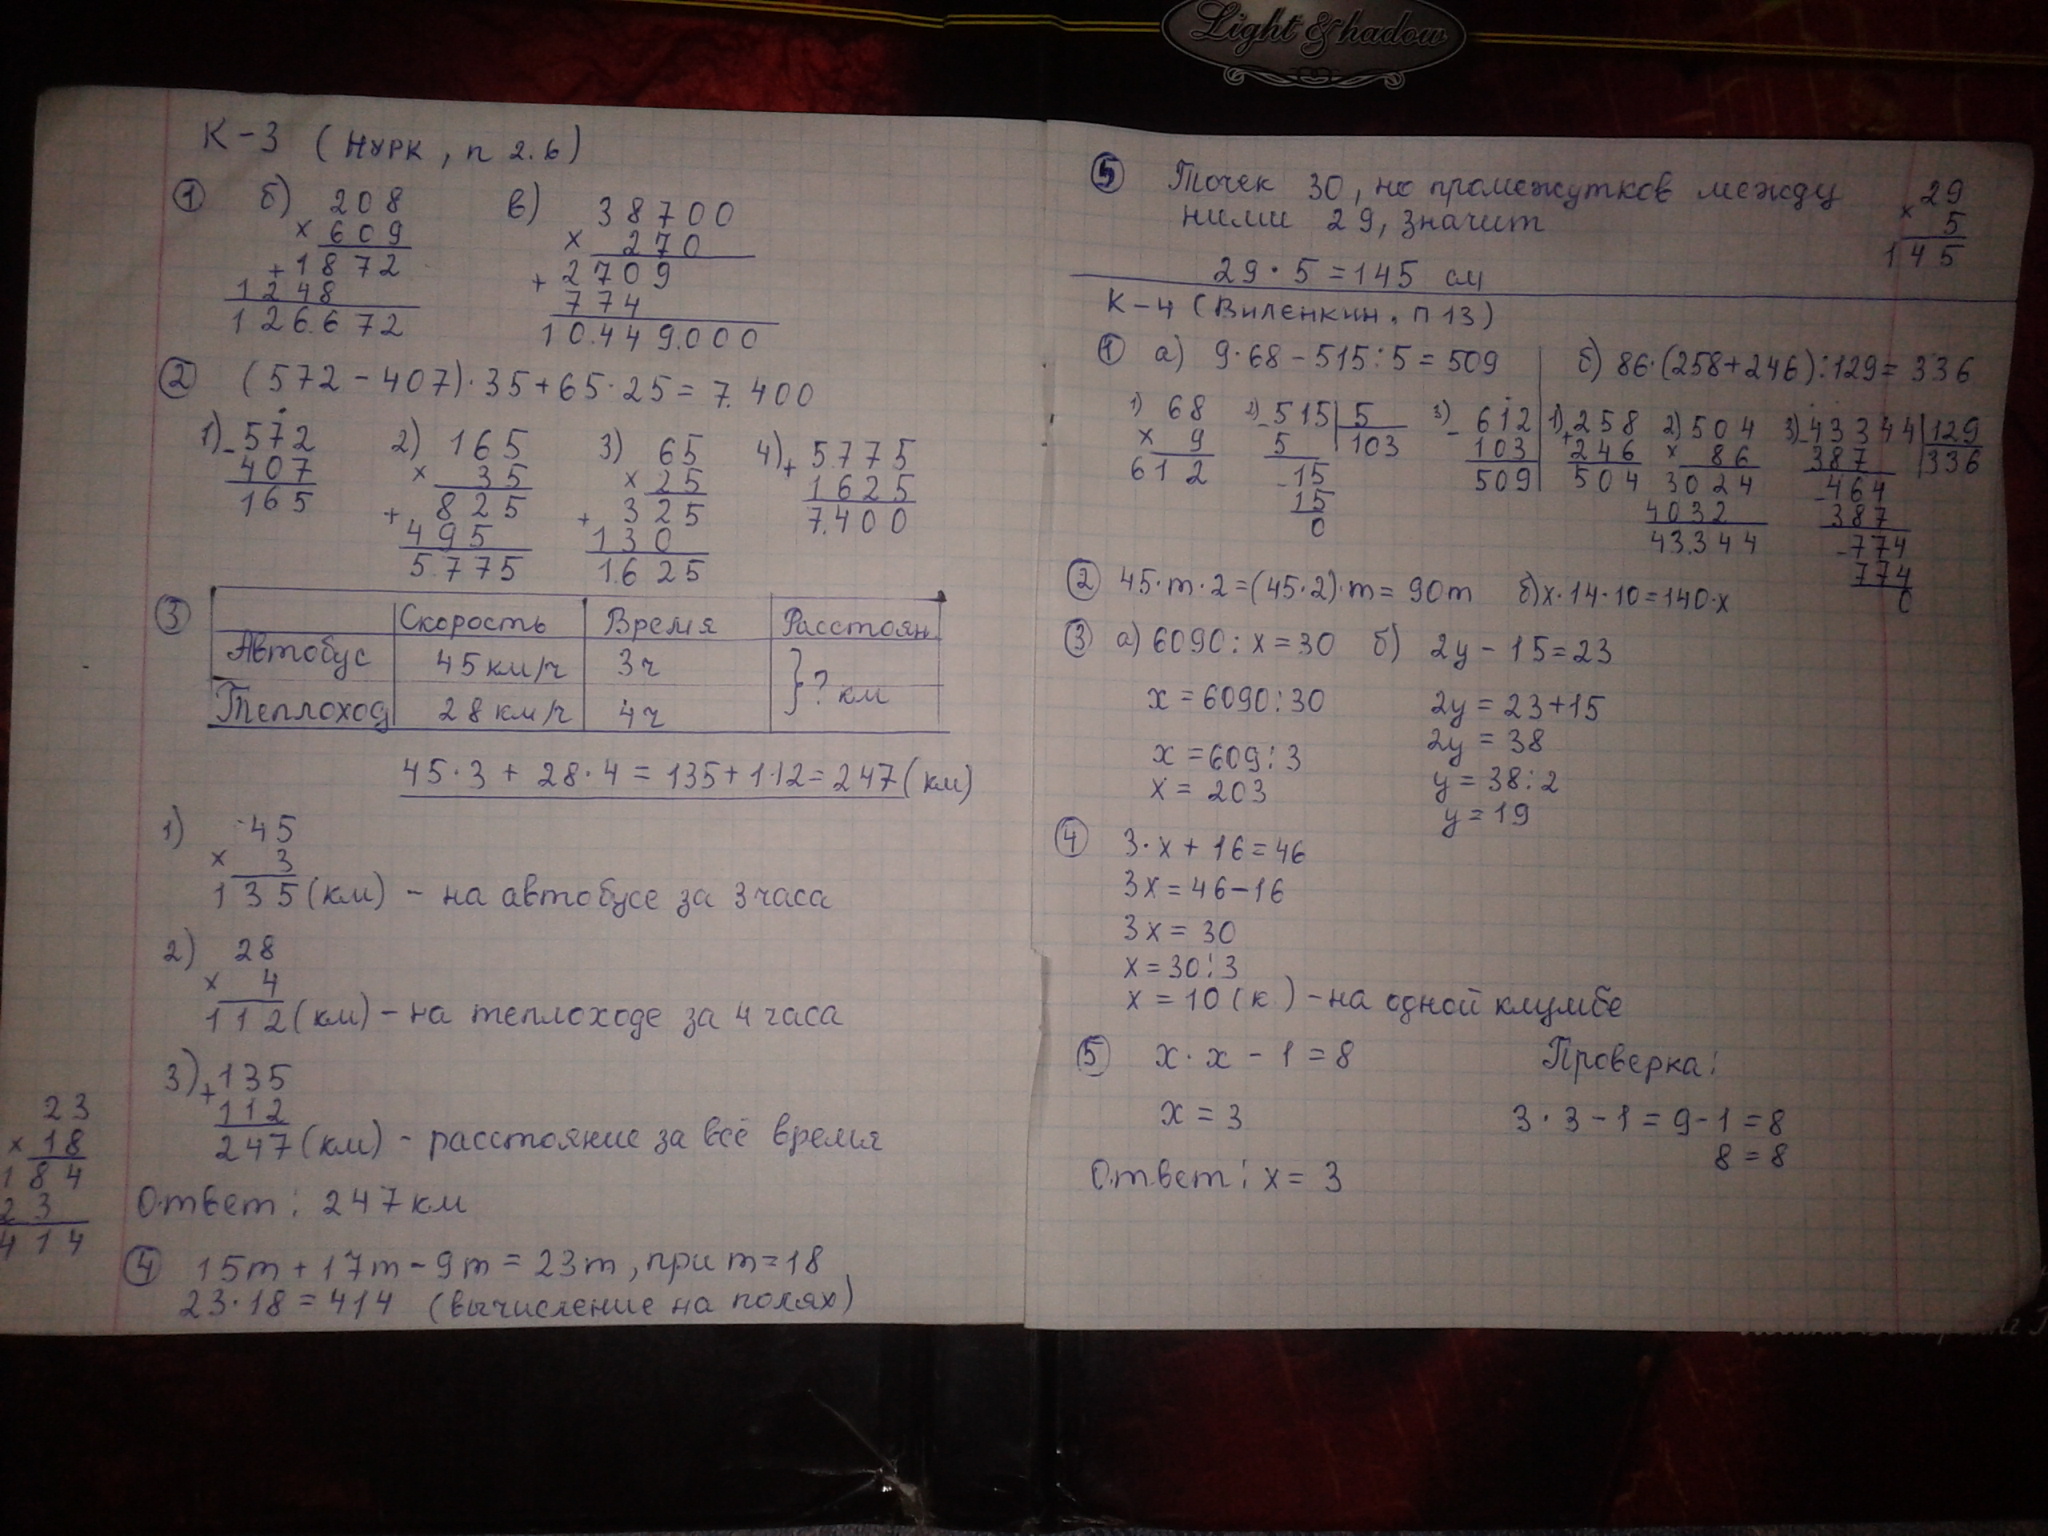 Light & Shadow
К-3 (Нурк, п 2.6)
① б) 208
× 609
+ 1872
1248
126.672
в) 38700
× 270
+ 2709
774
10.449.000
② (572 - 407)·35+65·25=7.400
1) - 572
407
165
2) 165
× 35
+ 825
495
5.775
3) 65
× 25
+ 325
130
1.625
4) + 5.775
1625
7.400
③
Скорость Время Расстоян.
Автобус 45 км/ч 3ч
} ? км
Теплоход 28 км/ч 4ч
45·3 + 28·4 = 135+112=247(км)
1) 45
× 3
135 (км) - на автобусе за 3 часа
2) 28
× 4
112 (км) - на теплоходе за 4 часа
3) + 135
112
247 (км) - расстояние за всё время
Ответ: 247 км
23
× 18
184
23
414
④ 15m + 17m - 9m = 23m, при m=18
23·18=414 (вычисление на полях)
⑤ Точек 30, но промежутков между
ними 29, значит
29·5=145 см
29
× 5
145
К-4 (Виленкин, п 13)
① а) 9·68 - 515:5=509
1) 68
× 9
612
2) - 515 | 5
5 103
- 15
15
0
3) - 612
103
509
б) 86·(258+246):129=336
1) + 258
246
504
2) 504
× 86
3024
4032
43.344
3) - 43344 | 129
387 336
- 464
387
- 774
774
0
② 45·m·2=(45·2)·m=90m б) x·14·10=140·x
③ а) 6090:x=30
x=6090:30
x=609:3
x=203
б) 2y - 15=23
2y=23+15
2y=38
y=38:2
y=19
④ 3·x+16=46
3x=46-16
3x=30
x=30:3
x=10 (к.) - на одной клумбе
⑤ x·x - 1=8
x=3
Проверка:
3·3-1=9-1=8
8=8
Ответ: x=3